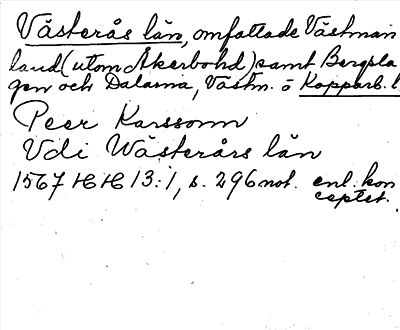 Västerås län, omfattade Västman
land (utom Åkerbohd) samt Bergsla
gen och Dalarna, Västm. o Kopparb. l.
Peer Karssonn
Vdi Wästerårs län
1567 HH 13:1, s. 296 not. enl. kon
ceptet.